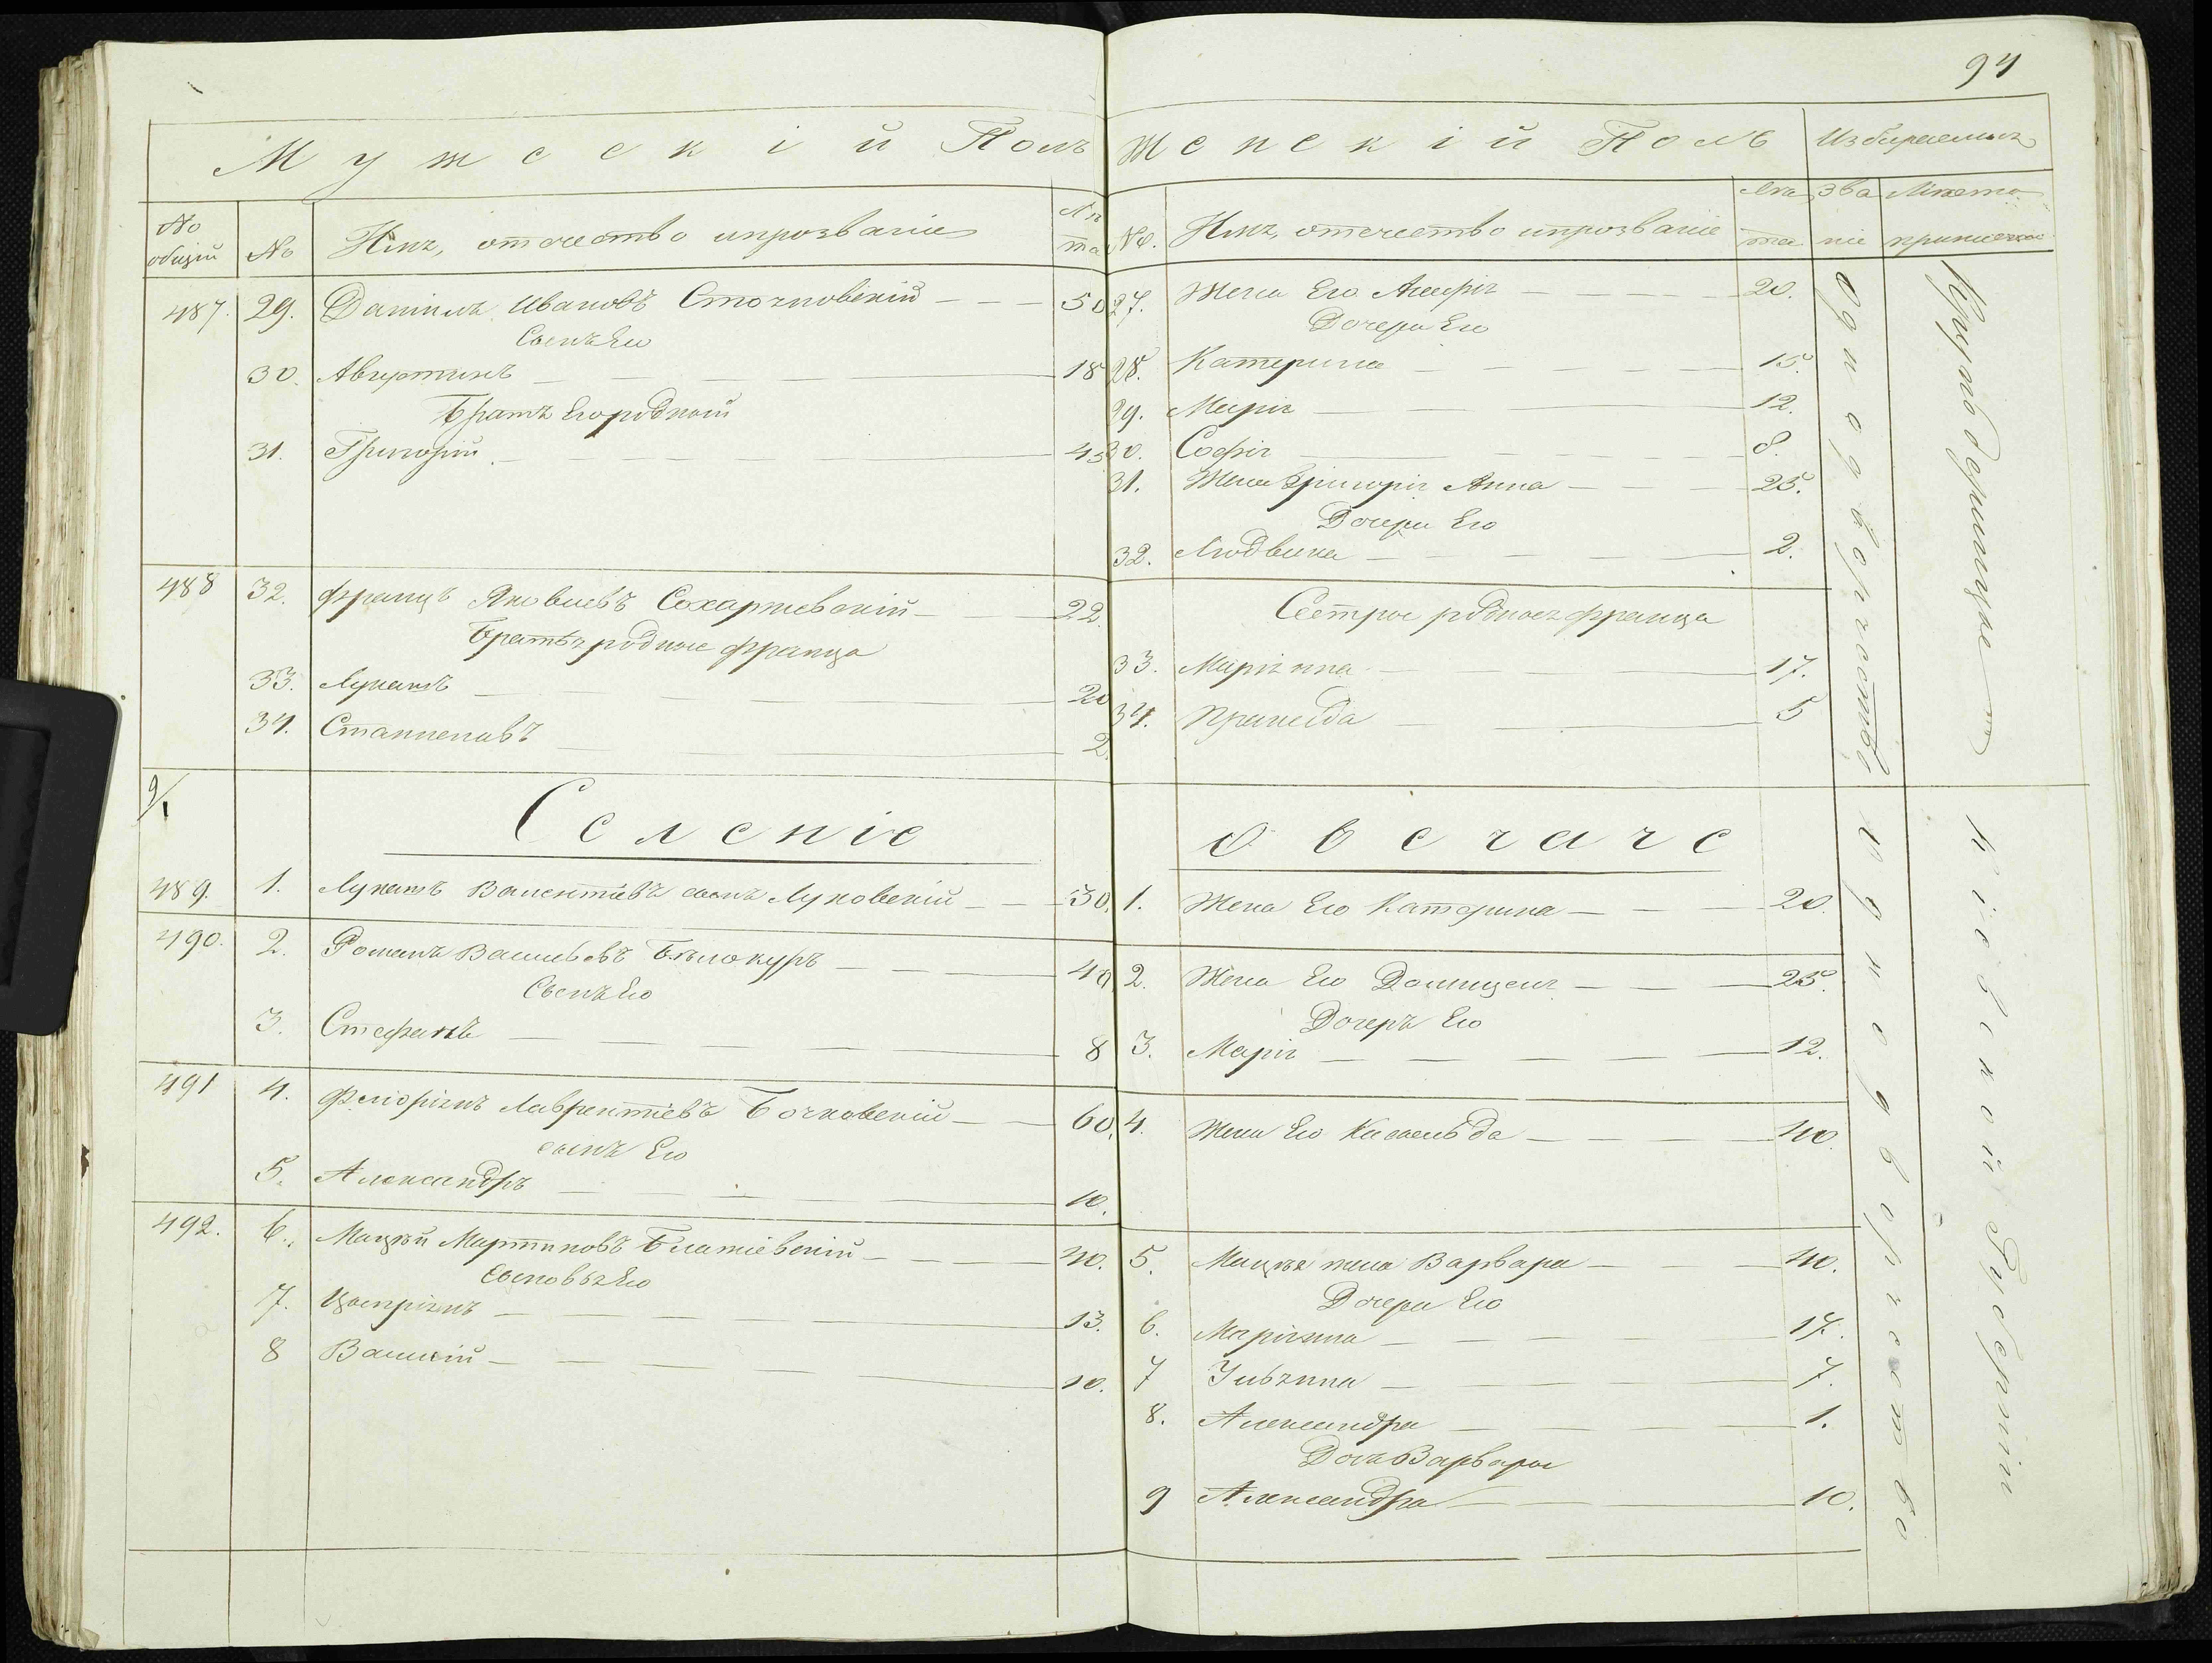 94
Мужескій Полъ
Женскій Полъ
Избираемыя
No общій
No
Имя, отчество и прозваніе
Лѣта
No.
Имя, отчество и прозваніе
Лѣта
Званіе
Мѣста приписки
487.
29.
Даніилъ Ивановъ Сточковскій
50
Сынъ Его
30.
Августинъ
18
Братъ Его родной
31.
Григорій
45
27.
Жена Его Марія
20.
Дочери Его
28.
Катерина
15.
29.
Марія
12.
30.
Софія
8.
31.
Жена Григорія Анна
25.
Дочери Его
32.
Людвика
2.
488
32.
Францъ Яковлевъ Сахаржевскій
22.
Братья родные Франца
33.
Лукашъ
20
34.
Станиславъ
2.
Сестры родныя Франца
33.
Маріяна
17.
34.
5
9/1
Селеніе
Овечаче
489.
1.
Лукашъ Валентіевъ сынъ Луковскій
30.
1.
Жена Его Катерина
20.
490.
2.
Романъ Васильевъ Бѣлокуръ
40
Сынъ Его
3.
Стефанъ
8
2.
Жена Его Домицеля
25.
Дочеръ Его
3.
Марія
12.
491
4.
Флоріянъ Лаврентіевъ Бочковскій
60.
сынъ Его
5.
Александръ
10.
4.
Жена Его
40.
492.
6.
Мацѣй Мартиновъ
40.
Сыновья Его
7.
Ципріянъ
13.
8
Василій
10.
5.
Мацѣя жена Варвара
40.
Дочери Его
6.
Маріянна
17.
7
Ульянна
7.
8.
Александра
1.
Дочь Варвары
9
Александра
10.
Однодворчество
Однодворчество
Кіевской Губерніи